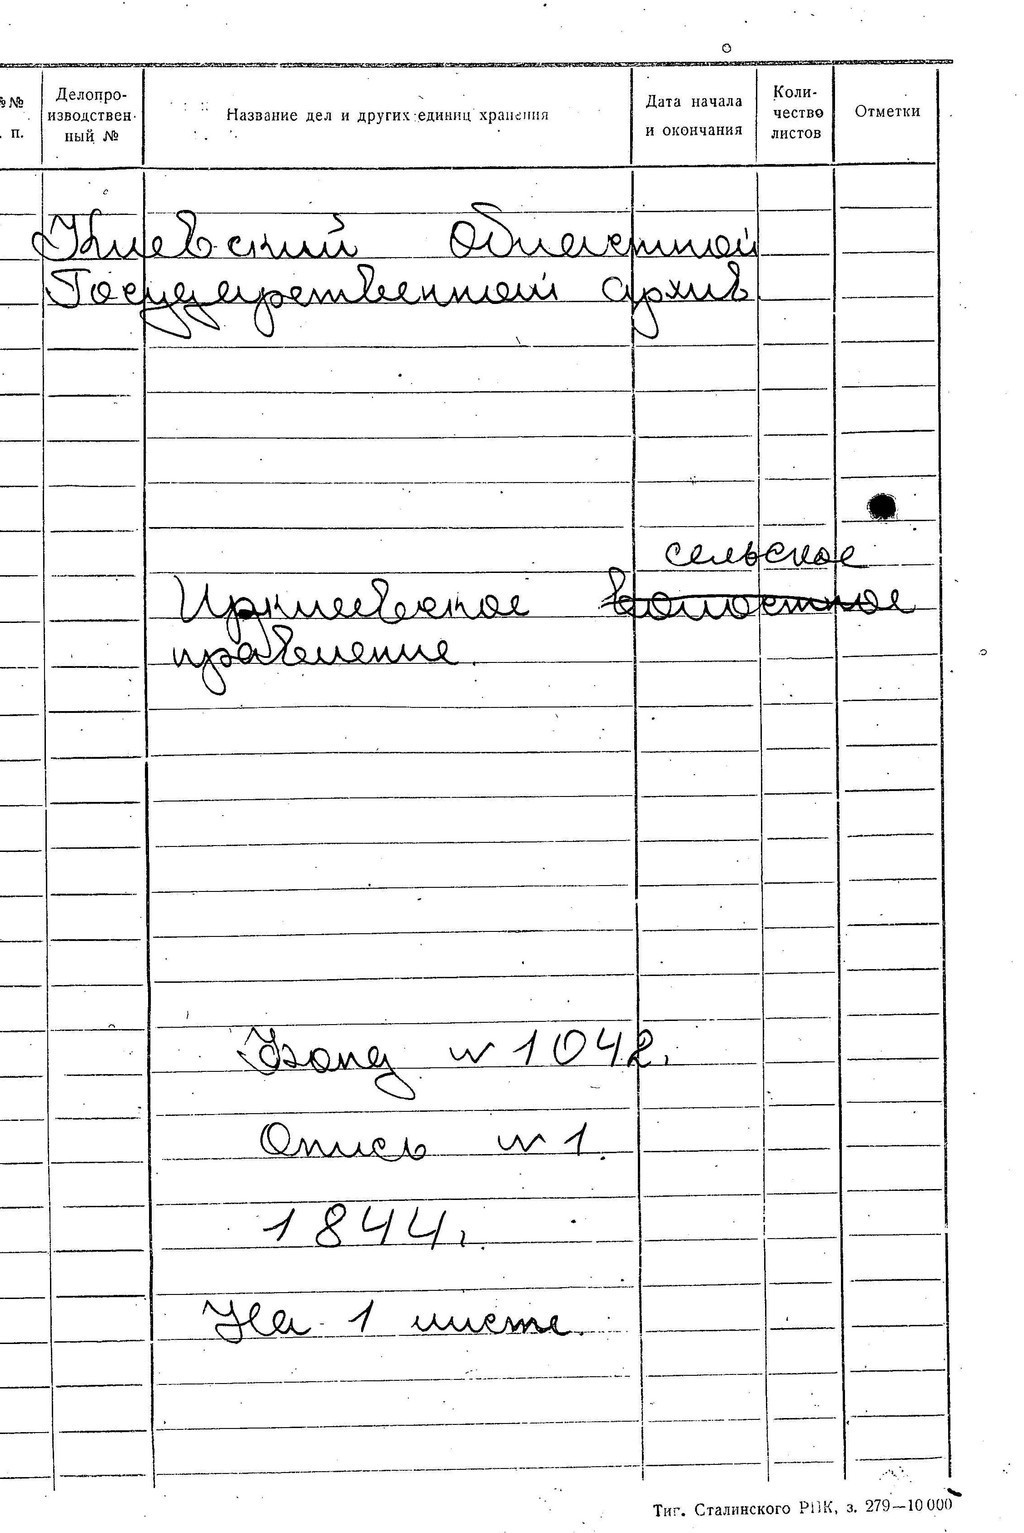 №№ п. п.
Делопро-
изводствен-
ный №
Название дел и других единиц хранения
Дата начала
и окончания
Коли-
чество
листов
Отметки
Киевский Областной
Государственный архив
сельское
Иркиевское волостное
правление.
Фонд № 1042.
Опись № 1.
1844г.
На 1 листе.
Тиг. Сталинского РПК, з. 279—10 000